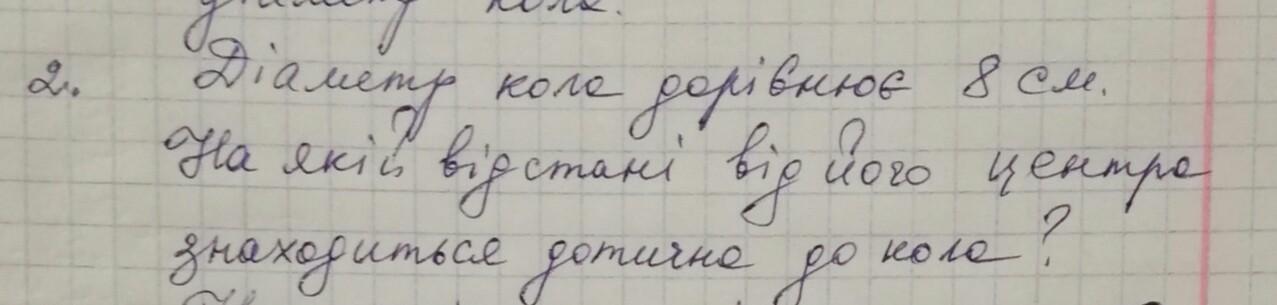 діаметр кола.
2. Діаметр кола дорівнює 8 см.
На якій відстані від його центра
знаходиться дотична до кола?